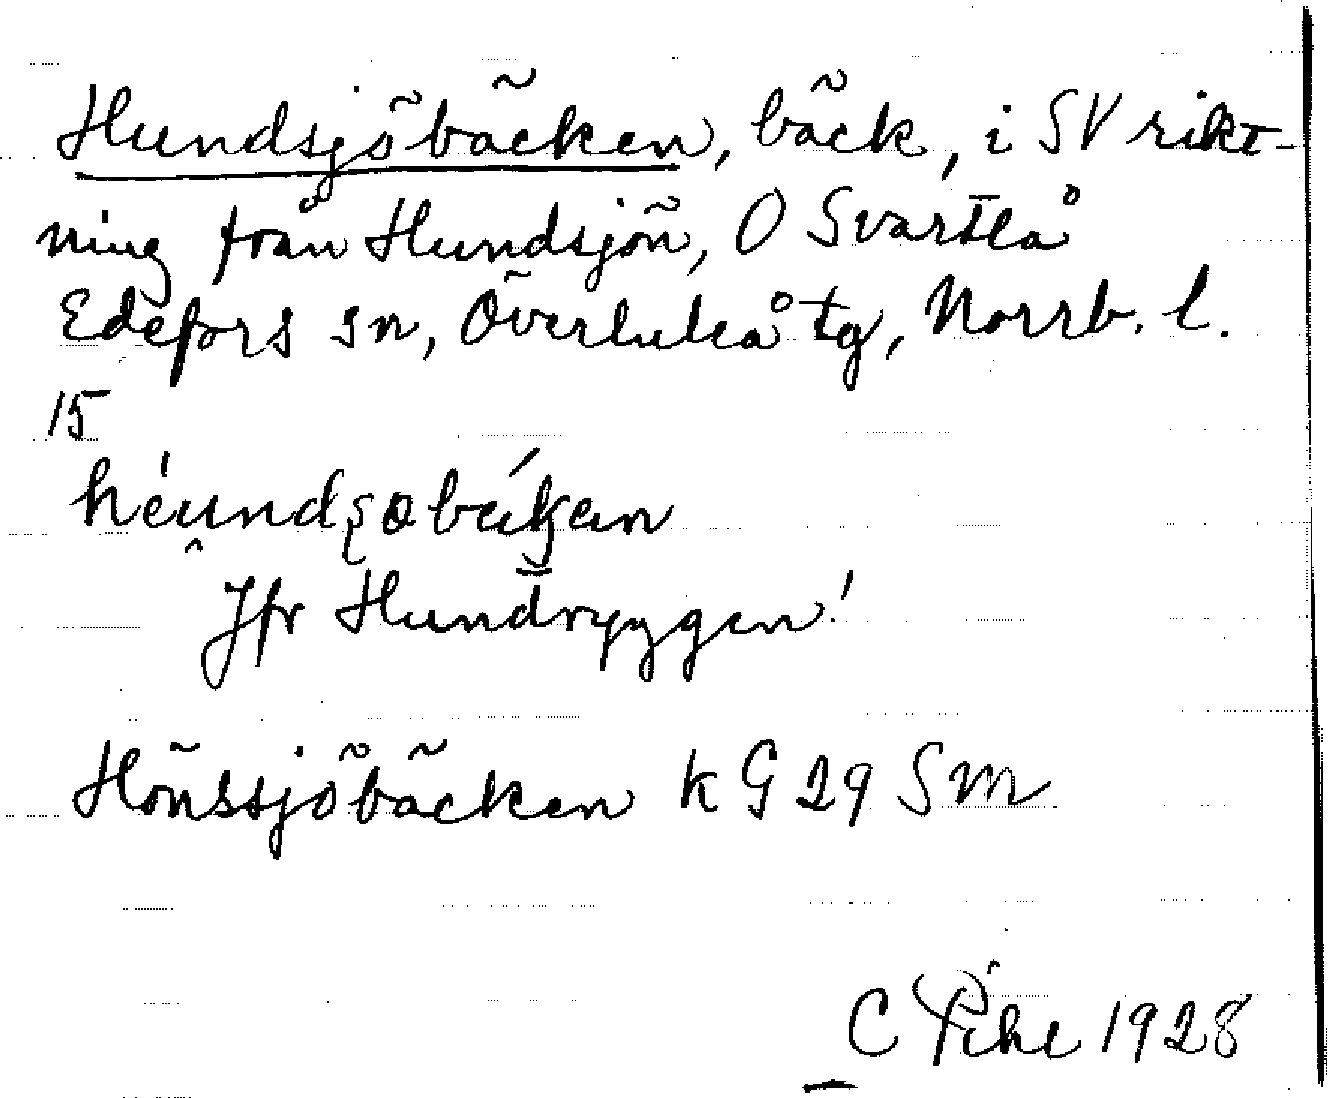 Hundsjöbäcken, bäck, i SV rikt-
ning från Hundsjön, O Svartlå
Edefors sn, Överluleå tg, Norrb. l.
15
Jfr Hundryggen!
Hönssjöbäcken kG 29 Sm
C Pihl 1928